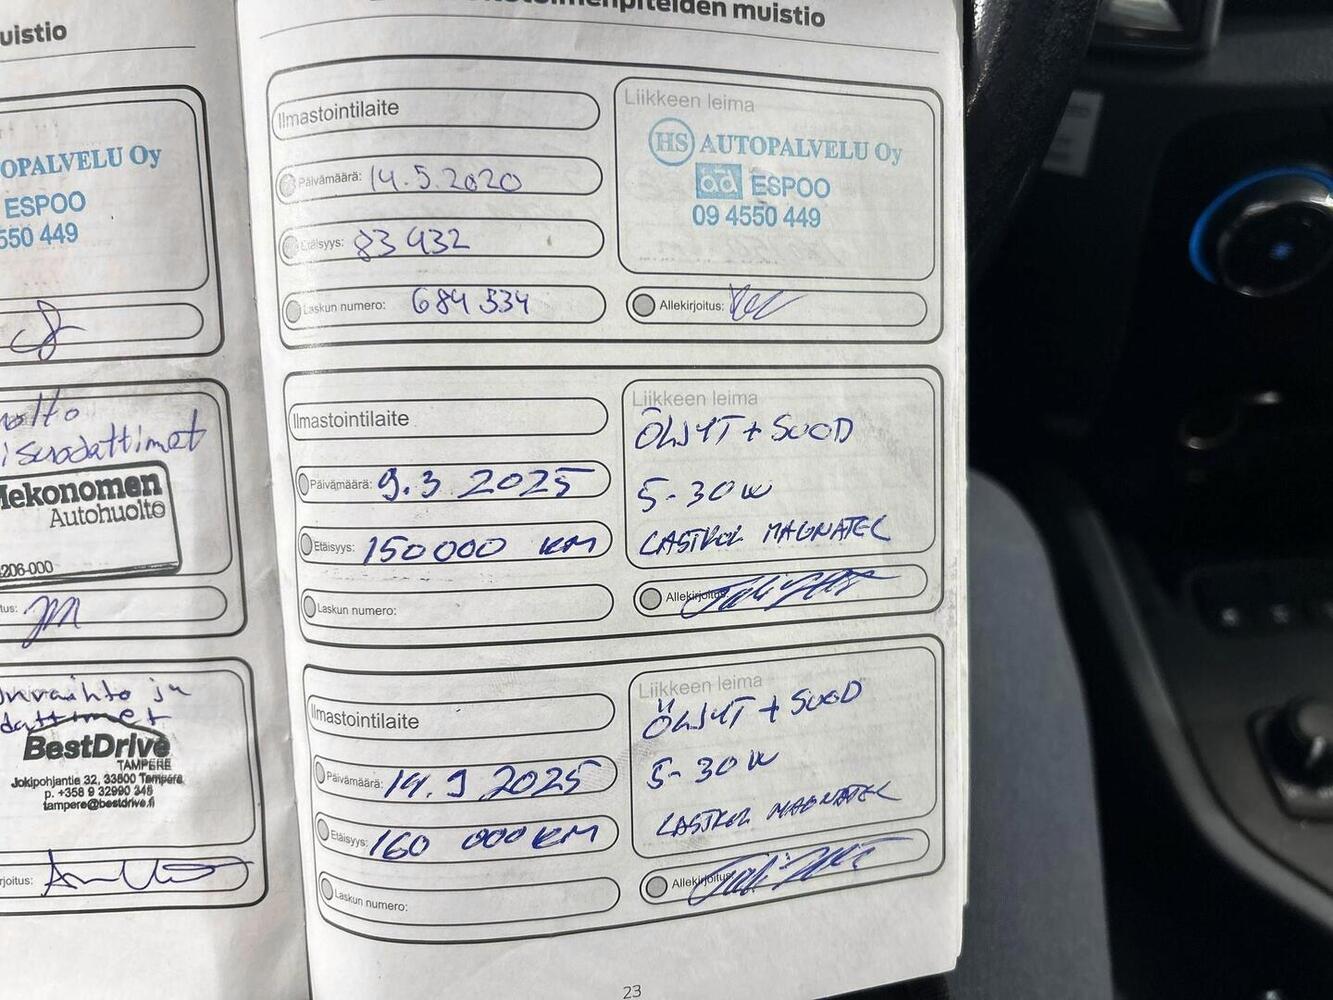 uistio
OPALVELU Oy
ESPOO
550 449
isuodattimet
Mekonomen
Autohuolto
206-000
tus:
BestDrive
TAMPERE
Jokipohjantie 32, 33800 Tampere
p. +358 9 32990 345
tampere@bestdrive.fi
rjoitus:
muistio
Ilmastointilaite
Päivämäärä: 14.5.2020
Etäisyys: 83 432
Laskun numero: 684 334
Liikkeen leima
HS AUTOPALVELU Oy
ad ESPOO
09 4550 449
Allekirjoitus:
Ilmastointilaite
Päivämäärä: 9.3 2025
Etäisyys: 150 000 KM
Laskun numero:
Liikkeen leima
ÖLJYT + SUOD
5-30W
CASTROL MAGNATEC
Allekirjoitus:
Ilmastointilaite
Päivämäärä: 14.9 2025
Etäisyys: 160 000 KM
Laskun numero:
Liikkeen leima
ÖLJYT + SUOD
5-30W
CASTROL MAGNATEC
Allekirjoitus:
23